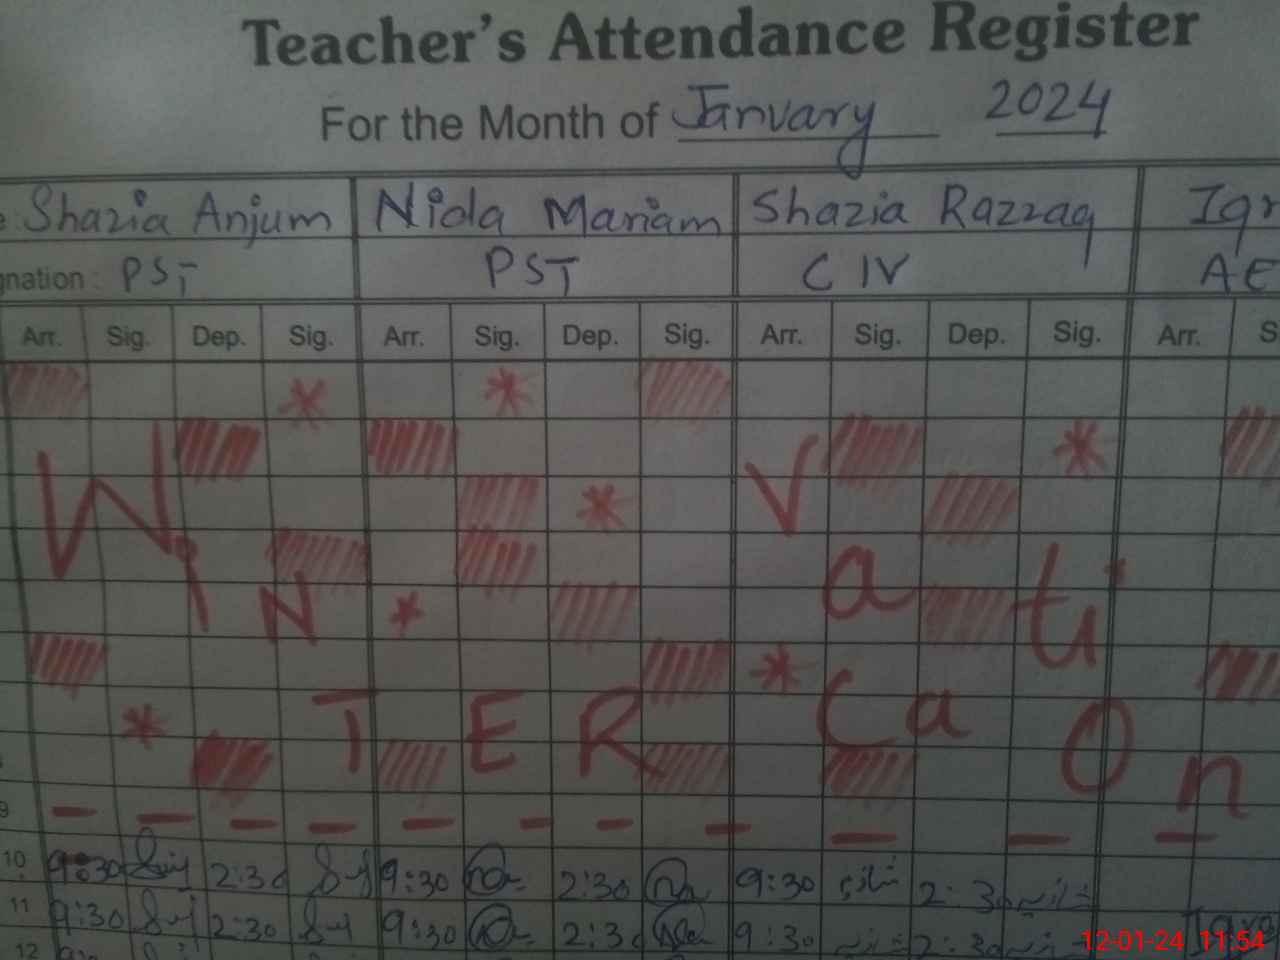 Teacher's Attendance Register
For the Month of January 2024
Shazia Anjum Nida Mariam Shazia Razzaq
gnation : PST PST CIV AE
Arr. Sig. Dep. Sig. Arr. Sig. Dep. Sig. Arr. Sig. Dep. Sig. Arr. S
WiNTER Vacation
9
10 9:30 2:30 9:30 2:30 9:30 شازیہ 2:30 شازیہ
11 9:30 2:30 9:30 2:30 9:30 شازیہ 2:30 شازیہ
12
12-01-24 11:54